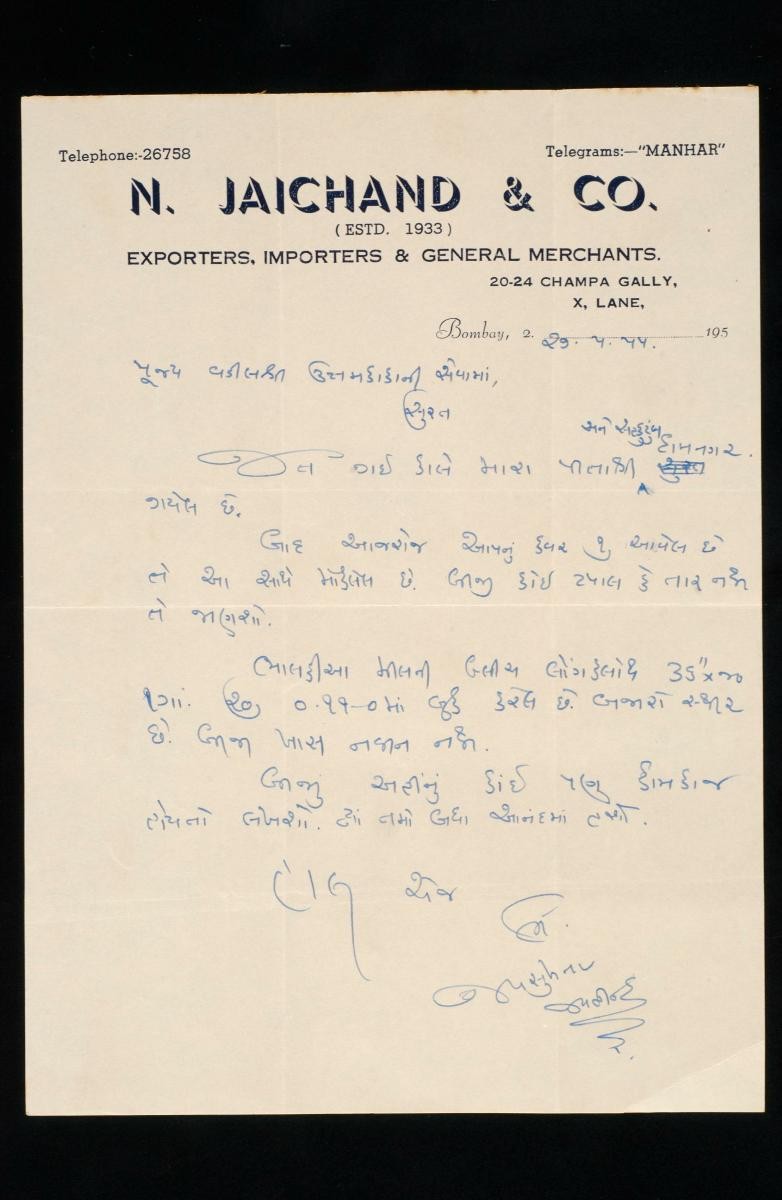 Telephone:-26758
Telegrams:—"MANHAR"
N. JAICHAND & CO.
( ESTD. 1933 )
EXPORTERS, IMPORTERS & GENERAL MERCHANTS.
20-24 CHAMPA GALLY,
X, LANE,
Bombay, 2. ૨૭-૫-૫૫. 195
પૂજ્ય વડીલશ્રી ઉત્તમકાકાની સેવામાં,
સુરત
અને સહકુટુંબ
દામનગર.
જત ગઈ કાલે મારા પીતાશ્રી
ગયેલ છે.
બાદ આજરોજ આપનું કવર ૧ આવેલ છે
તે આ સાથે મોકલેલ છે. બીજી કોઈ ટપાલ કે તાર નથી
તે જાણશો.
મીલની બ્લીચ લોંગકલોથ 35"x૪૦
૧ગાં. રૂા ૦-૧૧-૦માં બુક કરેલ છે. બજારો સ્થીર
છે. બીજા ખાસ નવીન નથી.
બીજું અહીંનું કાંઈ પણ કામકાજ
હોયતો લખશો. ત્યાં તમો બધા આનંદમાં હશો.
એજ
લિ.